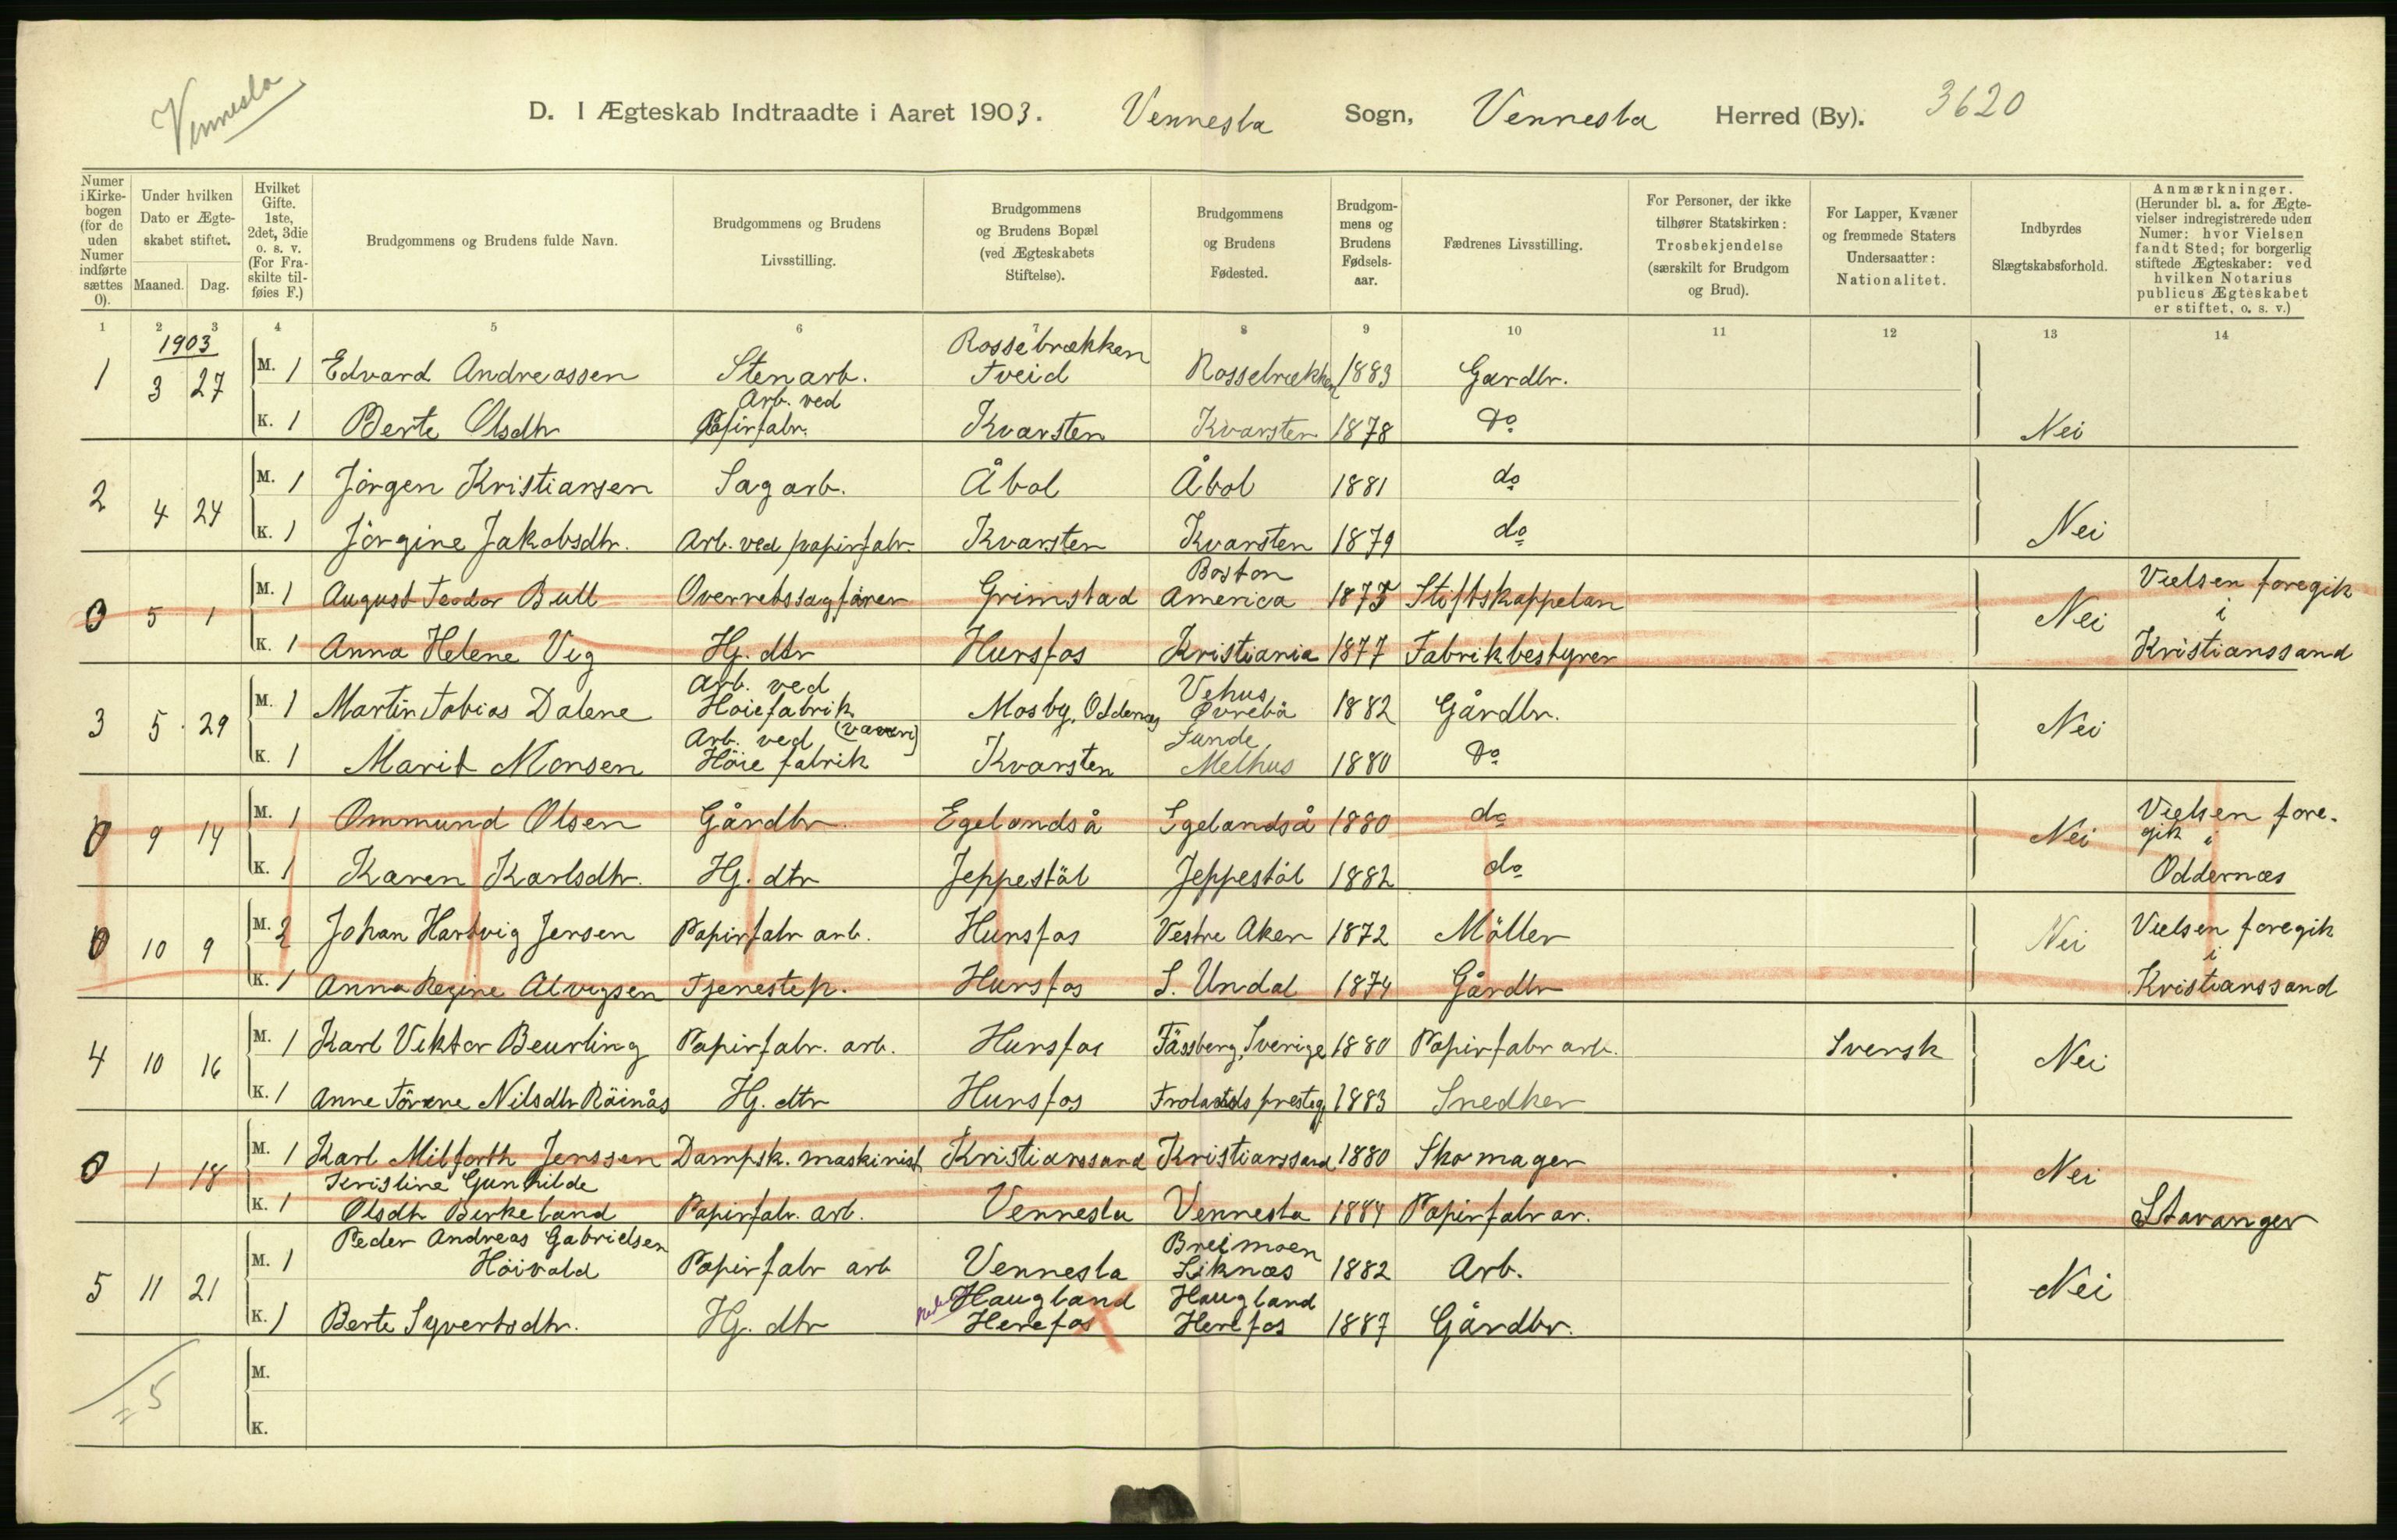 Vennesla
D. I Ægteskab Indtraadte i Aaret 1903. Vennesla Sogn, Vennesla Herred (By). 3620
Numer i Kirkebogen (for de uden Numer indførte sættes 0).
Under hvilken Dato er Ægteskabet stiftet.
Maaned. Dag.
Hvilket Gifte. 1ste, 2det, 3die o. s. v. (For Fraskilte tilføies F.)
Brudgommens og Brudens fulde Navn.
Brudgommens og Brudens Livsstilling.
Brudgommens og Brudens Bopæl (ved Ægteskabets Stiftelse).
Brudgommens og Brudens Fødested.
Brudgommens og Brudens Fødselsaar.
Fædrenes Livsstilling.
For Personer, der ikke tilhører Statskirken: Trosbekjendelse (særskilt for Brudgom og Brud).
For Lapper, Kvæner og fremmede Staters Undersaatter: Nationalitet.
Indbyrdes Slægtskabsforhold.
Anmærkninger. (Herunder bl. a. for Ægtevielser indregistrerede uden Numer: hvor Vielsen fandt Sted; for borgerlig stiftede Ægteskaber: ved hvilken Notarius publicus Ægteskabet er stiftet, o. s. v.)
1 2 3 4 5 6 7 8 9 10 11 12 13 14
1903
1 3 27 M. 1 Edvard Andreassen Stenarb. Rossebrækken Tveid Rossebrækken 1883 Gardbr.
K. 1 Berte Olsdtr Arb. ved Papirfabr. Kvarsten Kvarsten 1878 Do Nei
2 4 24 M. 1 Jörgen Kristiansen Sagarb. Åbol Åbol 1881 do
K. 1 Jörgine Jakobsdtr. Arb. ved papirfabr. Kvarsten Kvarsten 1879 do Nei
0 5 1 M. 1 August Teodor Bull Overretssagförer Grimstad Boston America 1875 Stiftskappelan Nei Vielsen foregik i
K. 1 Anna Helene Vig Hj. dtr Hunsfos Kristiania 1877 Fabrikbestyrer Kristianssand
3 5 29 M. 1 Martin Tobias Dalene Arb. ved Höiefabrik (væveri) Mosby, Oddernes Vehus Øvrebö 1882 Gårdbr. Nei
K. 1 Marit Monsen Arb. ved Höie fabrik Kvarsten Sunde Melhus 1880 Do
0 9 14 M. 1 Ommund Olsen Gårdbr. Egelandså Egelandså 1880 do Nei Vielsen foregik i
K. 1 Karen Karlsdtr. Hj. dtr Jeppestöl Jeppestöl 1882 do Oddernæs
0 10 9 M. 2 Johan Hartvig Jensen Papirfabr arb. Hunsfos Vestre Aker 1872 Möller Nei Vielsen foregik i
K. 1 Anna Regine Alvigsen Tjenestep. Hunsfos S. Undal 1874 Gårdbr Kristianssand
4 10 16 M. 1 Karl Viktor Beurling Papirfabr. arb. Hunsfos Fässberg, Sverige 1880 Papirfabr arb. Svensk Nei
K. 1 Anne Törene Nilsdtr Röinås Hj. dtr Hunsfos Frolands presteg. 1883 Snedker
0 1 18 M. 1 Karl Milforth Jenssen Dampsk. maskinist Kristianssand Kristianssand 1880 Skomager Nei
K. 1 Kristine Gunhilde Olsdtr Birkeland Papirfabr. arb. Vennesla Vennesla 1884 Papirfabr ar. Stavanger
5 11 21 M. 1 Peder Andreas Gabrielsen Höivold Papirfabr arb Vennesla Breimoen Liknæs 1882 Arb. Nei
K. 1 Berte Syvertsdtr. Hj. dtr Haugland Herefos Haugland Herefos 1887 Gårdbr.
M.
= 5
K.